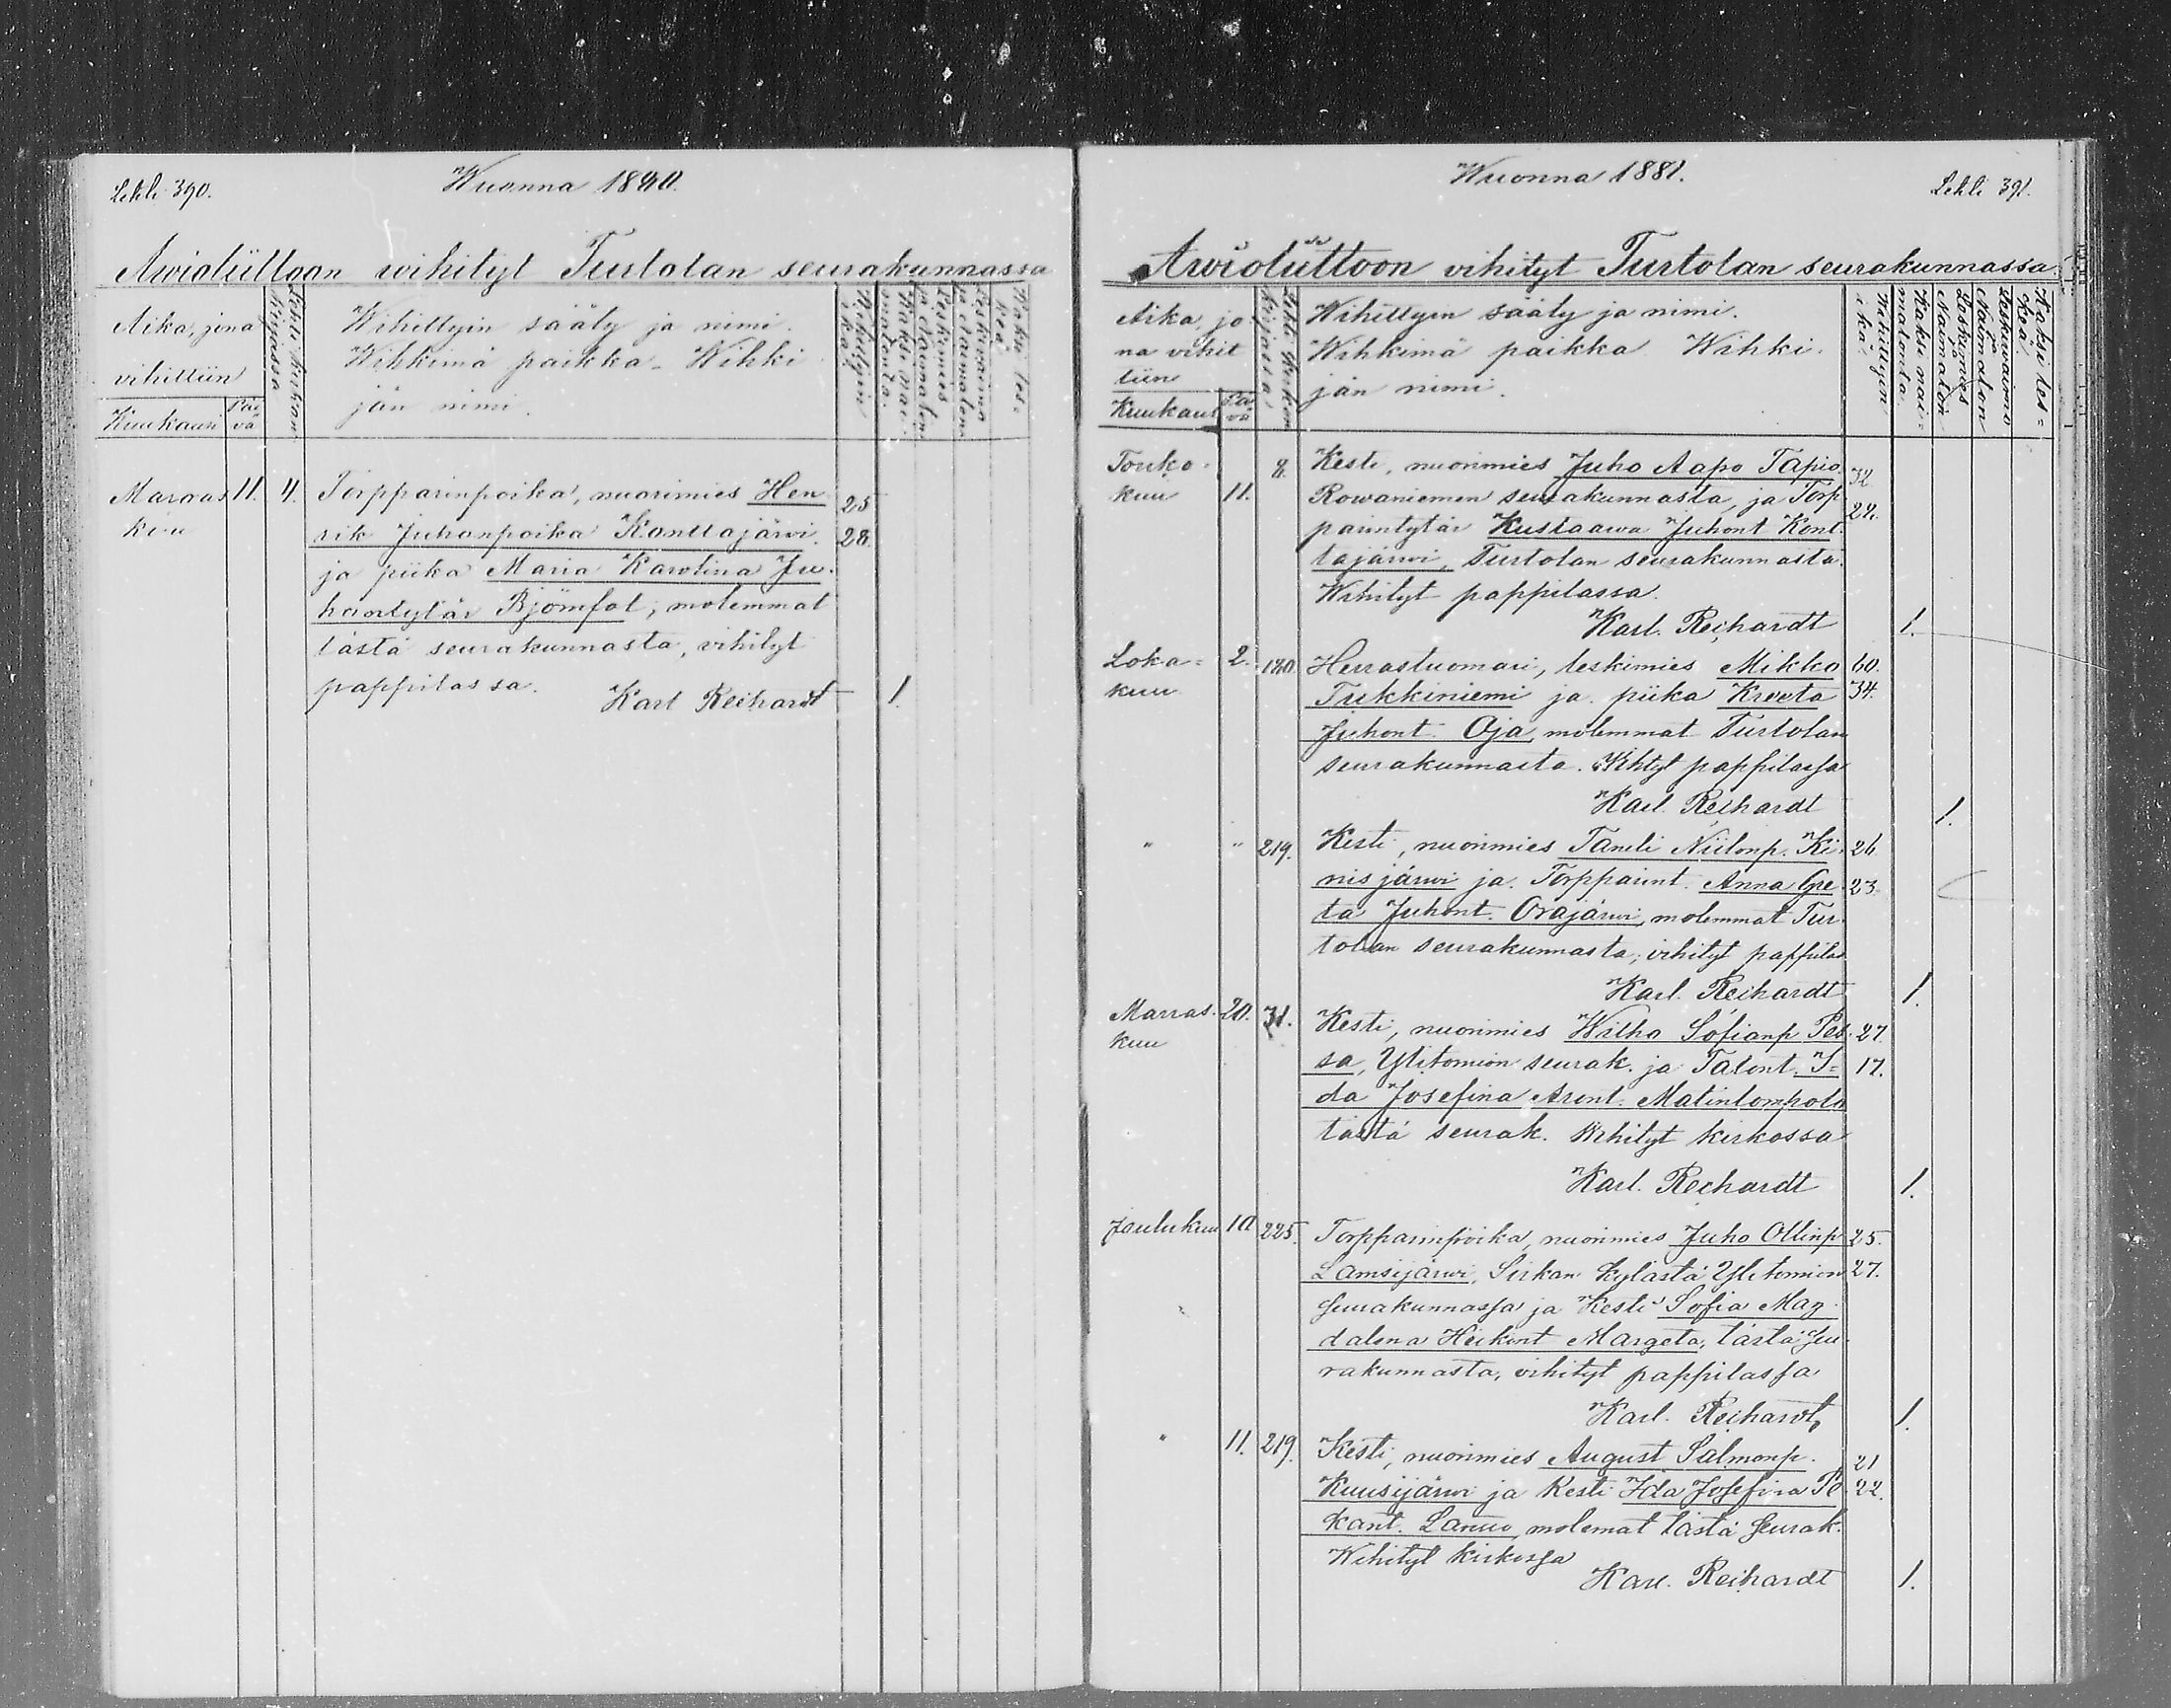 Lehti 390.
Wuonna 1880.
Awioliittoon wihityt Turtolan seurakunnassa
Aika, jona
vihittiin
Kuukausi
Päi
vä
Lehti kirkon
kirjassa
Wihittyin sääty ja nimi.
Wihkimä paikka - Wihki
jän nimi.
Wihittyin
ikä.
Kaksi nai
matonta.
Leskimies
ja naimaton
Leskivaimo
ja naimaton
Kaksi les=
keä
Marras
kuu
11.
4.
Torpparinpoika, nuorimies Hen
rik Juhonpoika Konttajärwi.
ja piika Maria Karolina Ju-
hontytär Björnfot, molemmat
tästä seurakunnasta, vihityt
pappilassa.
Karl Reihardt
25
28.
1.
Wuonna 1881.
Lehti 391.
Awioliittoon vihityt Turtolan seurakunnassa.
Aika, jo
na vihit
tiin
Kuukausi
Päi
vä
Lehti kirkon
kirjassa,
Wihittyin sääty ja nimi.
Wihkimä paikka Wihki-
jän nimi.
Wihittyin
ikä.
Kaksi nai=
matonta.
Leskimies
ja
Naimaton
Leskivaimo
ja
Naimaton
Kaksi les=
keä.
Touko-
kuu
11.
8.
Kesti, nuorimies Juho Aapo Tapio,
Rowaniemen seurakunnasta, ja Torp
parintytär Kustaawa Juhont Kont-
tajärwi, Turtolan seurakunnasta.
Wihityt pappilassa.
Karl. Reihardt
32
22.
1.
Loka=
kuu
2.
180.
Herrastuomari, leskimies Mikko
Tukkiniemi ja piika Kreeta
Juhont. Oja, molemmat Turtolan
seurakunnasta. Wihtyt pappilassa
Karl. Reihardt
60.
34.
1.
" " 219.
Kesti, nuorimies Taneli Niilonp. Ki-
nisjärwi ja Torpparint. Anna Gre
ta Juhont. Orajärwi, molemmat Tur-
tolan seurakunnasta, vihityt pappilas
Karl. Reihardt
26.
23.
1.
Marras-
kuu
20.
31.
Kesti, nuorimies Wilho Sofianp Pes
sa, Ylitornion seurak. ja Talont. I=
da Josefina Aront. Matinlompolo
tästä seurak. Wihityt kirkossa
Karl. Reihardt
27.
17.
1.
Joulukuu
10
225.
Torpparinpoika, nuorimies Juho Ollinp
Lamsijärwi, Sirkan kylästä Ylitornion
seurakunnassa ja Kesti Sofia Mag
dalena Heikint Margeta, tästä seu
rakunnasta, vihityt pappilassa
Karl. Reihardt,
25.
27.
1.
" 11. 219.
Kesti, nuorimies August Salmonp.
Kuusijärwi ja Kesti Ida Josefina Pe
kant. Lanuo, molemat tästä seurak.
Wihityt kirkossa
Karl. Reihardt
21
22.
1.